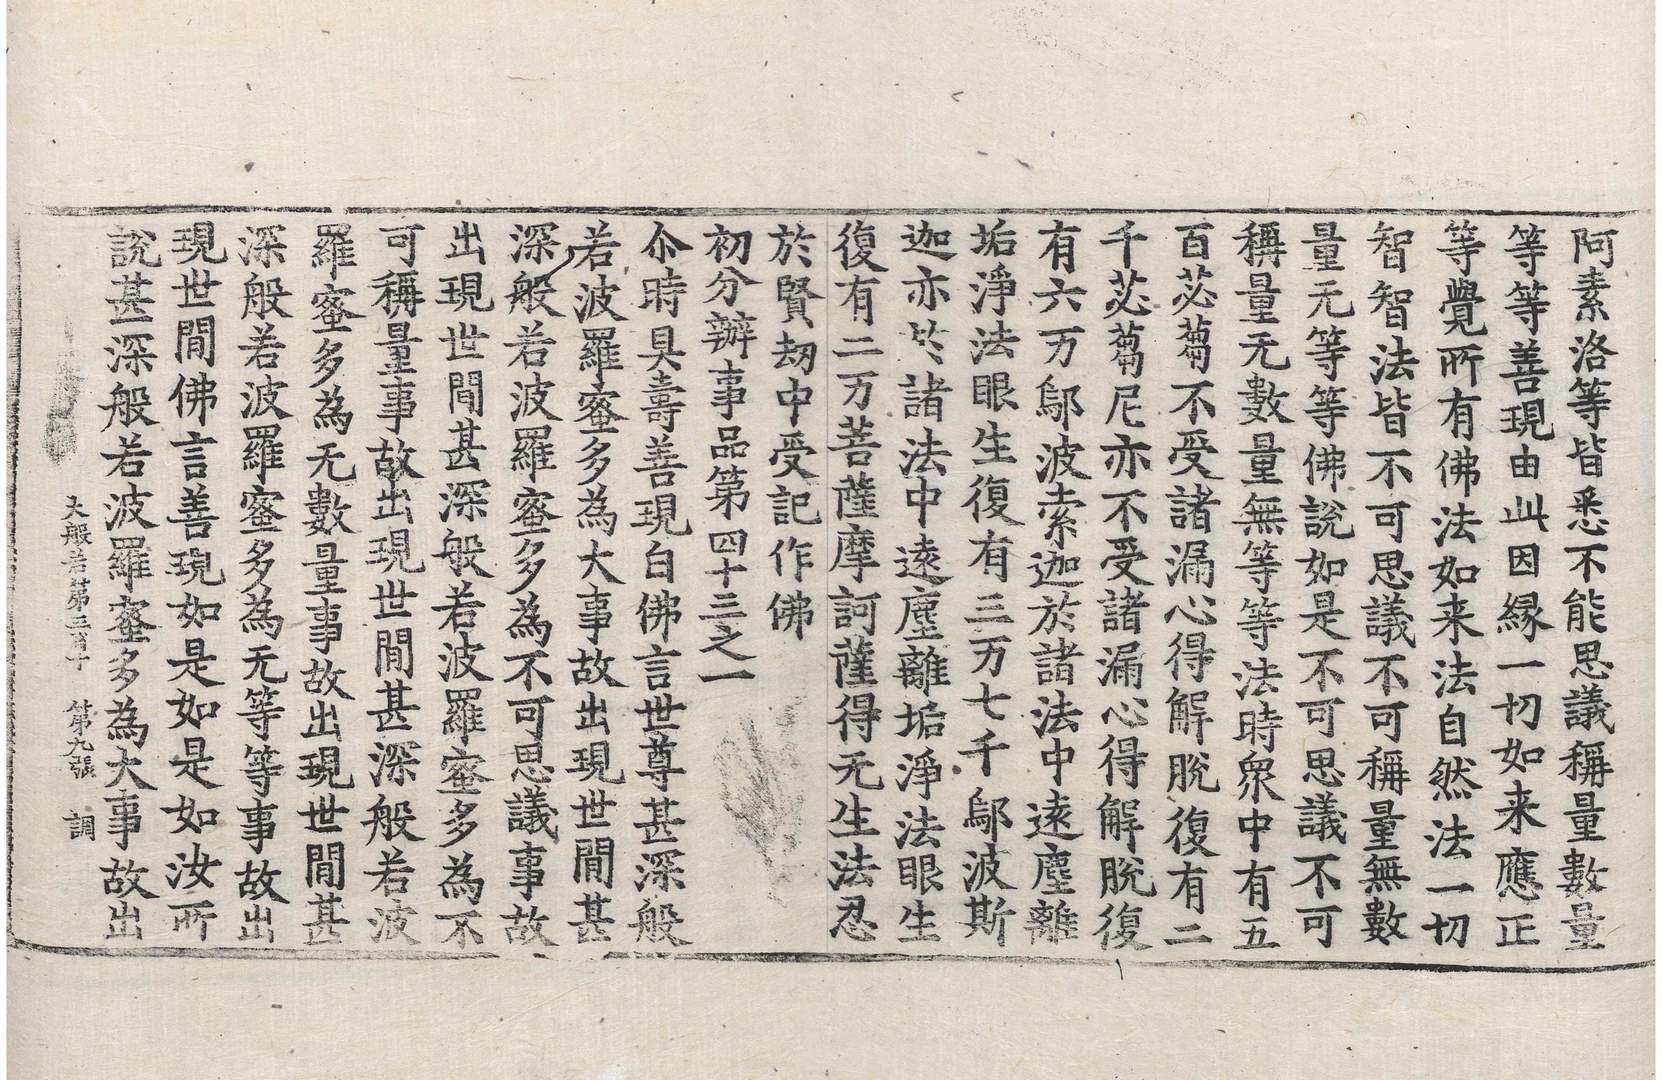 阿素洛等皆悉不能思議稱量數量
等等善現由此因緣一切如来應正
等覺所有佛法如来法自然法一切
智智法皆不可思議不可稱量無數
量无等等佛說如是不可思議不可
稱量无數量無等等法時衆中有五
百苾蒭不受諸漏心得解脫復有二
千苾蒭尼亦不受諸漏心得解脫復
有六万鄔波索迦於諸法中遠塵離
垢淨法眼生復有三万七千鄔波斯
迦亦於諸法中遠塵離垢淨法眼生
復有二万菩薩摩訶薩得无生法忍
於賢劫中受記作佛
初分辦事品第四十三之一
尒時具壽善現白佛言世尊甚深般
若波羅蜜多為大事故出現世間甚
深般若波羅蜜多為不可思議事故
出現世間甚深般若波羅蜜多為不
可稱量事故出現世間甚深般若波
羅蜜多為无數量事故出現世間甚
深般若波羅蜜多為无等等事故出
現世間佛言善現如是如是如汝所
說甚深般若波羅蜜多為大事故出
大般若第三百十 第九張 調